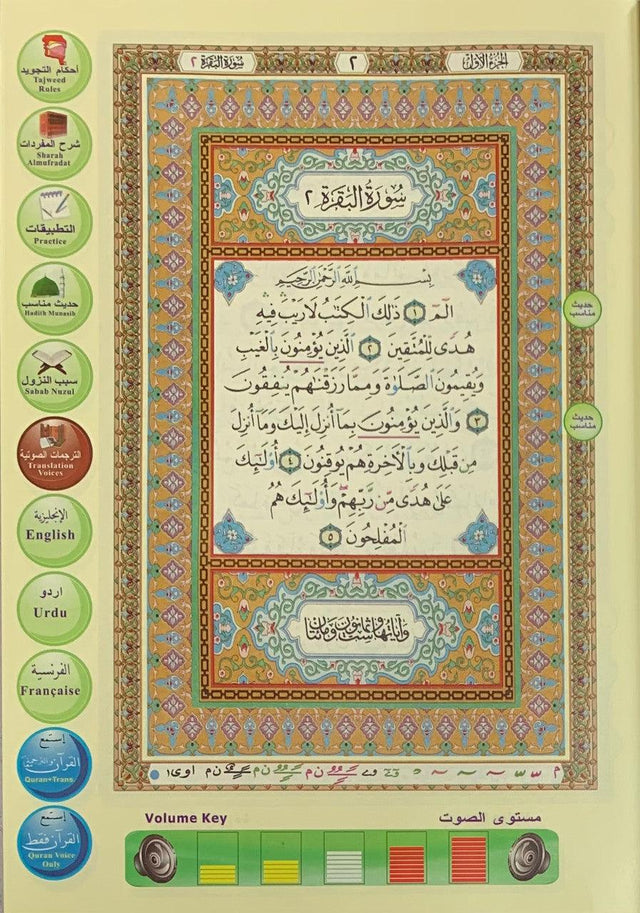 أحكام التجويد
Tajweed
Rules
شرح المفردات
Sharah
Almufradat
التطبيقات
Practice
حديث مناسب
Hadith Munasib
سبب النزول
Sabab Nuzul
الترجمات الصوتية
Translation
Voices
الإنجليزية
English
اردو
Urdu
الفرنسية
Française
إستمع
القرآن والترجمة
Quran+Trans.
إستمع
القرآن فقط
Quran Voice
Only
الجزء الأول
٢
سورة البقرة ٢
سُورَةُ البَقَرَة ٢
بِسْمِ اللَّهِ الرَّحْمَٰنِ الرَّحِيمِ
الٓمٓ ١ ذَٰلِكَ الْكِتَٰبُ لَا رَيْبَ فِيهِ
هُدًى لِّلْمُتَّقِينَ ٢ الَّذِينَ يُؤْمِنُونَ بِالْغَيْبِ
وَيُقِيمُونَ الصَّلَوٰةَ وَمِمَّا رَزَقْنَٰهُمْ يُنفِقُونَ
٣ وَالَّذِينَ يُؤْمِنُونَ بِمَا أُنزِلَ إِلَيْكَ وَمَا أُنزِلَ
مِن قَبْلِكَ وَبِالْآخِرَةِ هُمْ يُوقِنُونَ ٤ أُو۟لَٰٓئِكَ
عَلَىٰ هُدًى مِّن رَّبِّهِمْ وَأُو۟لَٰٓئِكَ هُمُ
الْمُفْلِحُونَ ٥
وآياتها ست وثمانون ومئتان
حديث
مناسب
حديث
مناسب
Volume Key
مستوى الصوت